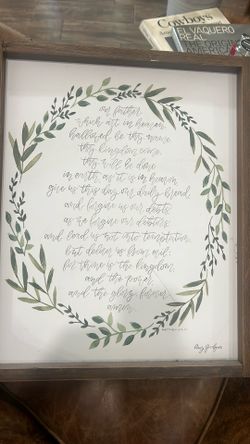 Cowboys
EL VAQUERO
REAL
THE ORIGINAL
AMERICAN
our father
which art in heaven
hallowed be thy name
thy kingdom come,
thy will be done
in earth, as it is in heaven
give us this day our daily bread
and forgive us our debts
as we forgive our debtors
and lead us not into temptation
but deliver us from evil:
for thine is the kingdom
and the power,
and the glory, forever
amen.